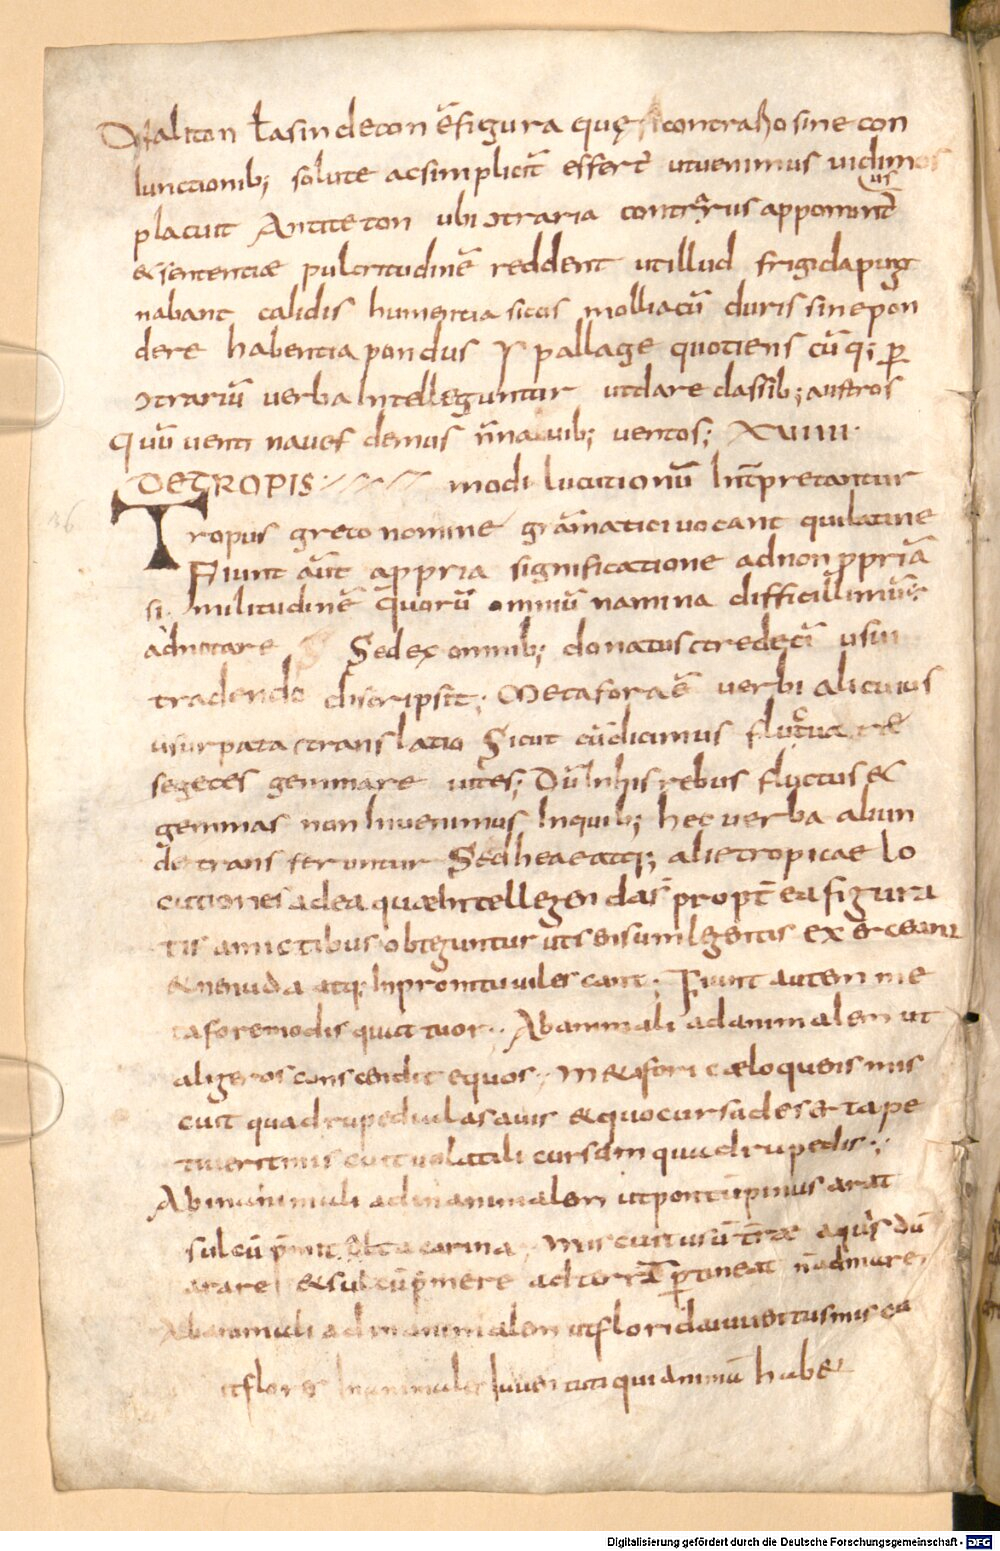 Disaliton ł asindeton ē figura quę si contrario sine con
iunctionib; solute ac simplicit̄ effert̄ ut uenimus uidimus
placuit Antiteton ubi ɔtraria contrariis apponunt̄
& sententiae pulcritudinē reddent ut illud frigida pug
nabant calidis humentia siccis mollia cū duris sine pon
dere habentia pondus Ypallage quotiens cūq; ꝑ
ɔtrariū verba Intelleguntur ut dare classib; austros
quū venti naues demus n̄ nauib; uentos; XVIIII·
DE TROPIS modi lucutionū Int̄pretantur
Tropus greco nomine grāmatici uocant qui latine
Fiunt aūt a ppria significatione ad non ppriā
similitudinē quorū omniū namina difficillimū ē
adnotare Sed ex omnib; donatus tredeci usui
tradendo discripsit; Metafora ē verbi alicuius
usurpata translatio Sicut cū dicimus fluctuare
segetes gemmare uites; Dū In his rebus fluctus &
gemmas non Inuenimus In quib; hec uerba aliun
de trans feruntur Sed heae atq; alie tropicae lo
cutiones ad ea quae Intellegendas propt̄ ea figura
tis amictibus obteguntur ut sensum legentis exerceant
& ne nuda atq; In promtu uilescant; Fiunt autem me
tafore modis quattuor; Ab animali ad animalem ut
aligeros conscendit equos; Metafori cae loquens mis
cuit quadrupedi alas auis & quo cursu deserta pe
tiuerit miscuit uolatili cursum quadrupedis;
Ab inanimali ad inanimalem ut pontū pinus arat
sulcū p̄mit alta carina; Miscuit usū terrae aquis dū
arare & sulcū p̄mere ad terrā ꝑtineat n̄ ad mare
Ab animali ad inanimalem ut florida iuuentus miscu
it flores Inanimales Iuuentuti qui animū habe
Digitalisierung gefördert durch die Deutsche Forschungsgemeinschaft - DFG